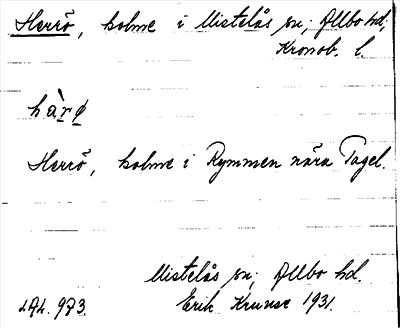 Herrö, holme i Mistelås sn; Allbo hd,
Kronob. l.
hàrø
Herrö, holme i Rymmen nära Tagel.
Mistelås sn; Allbo hd.
973 Erik Kruuse 1931.